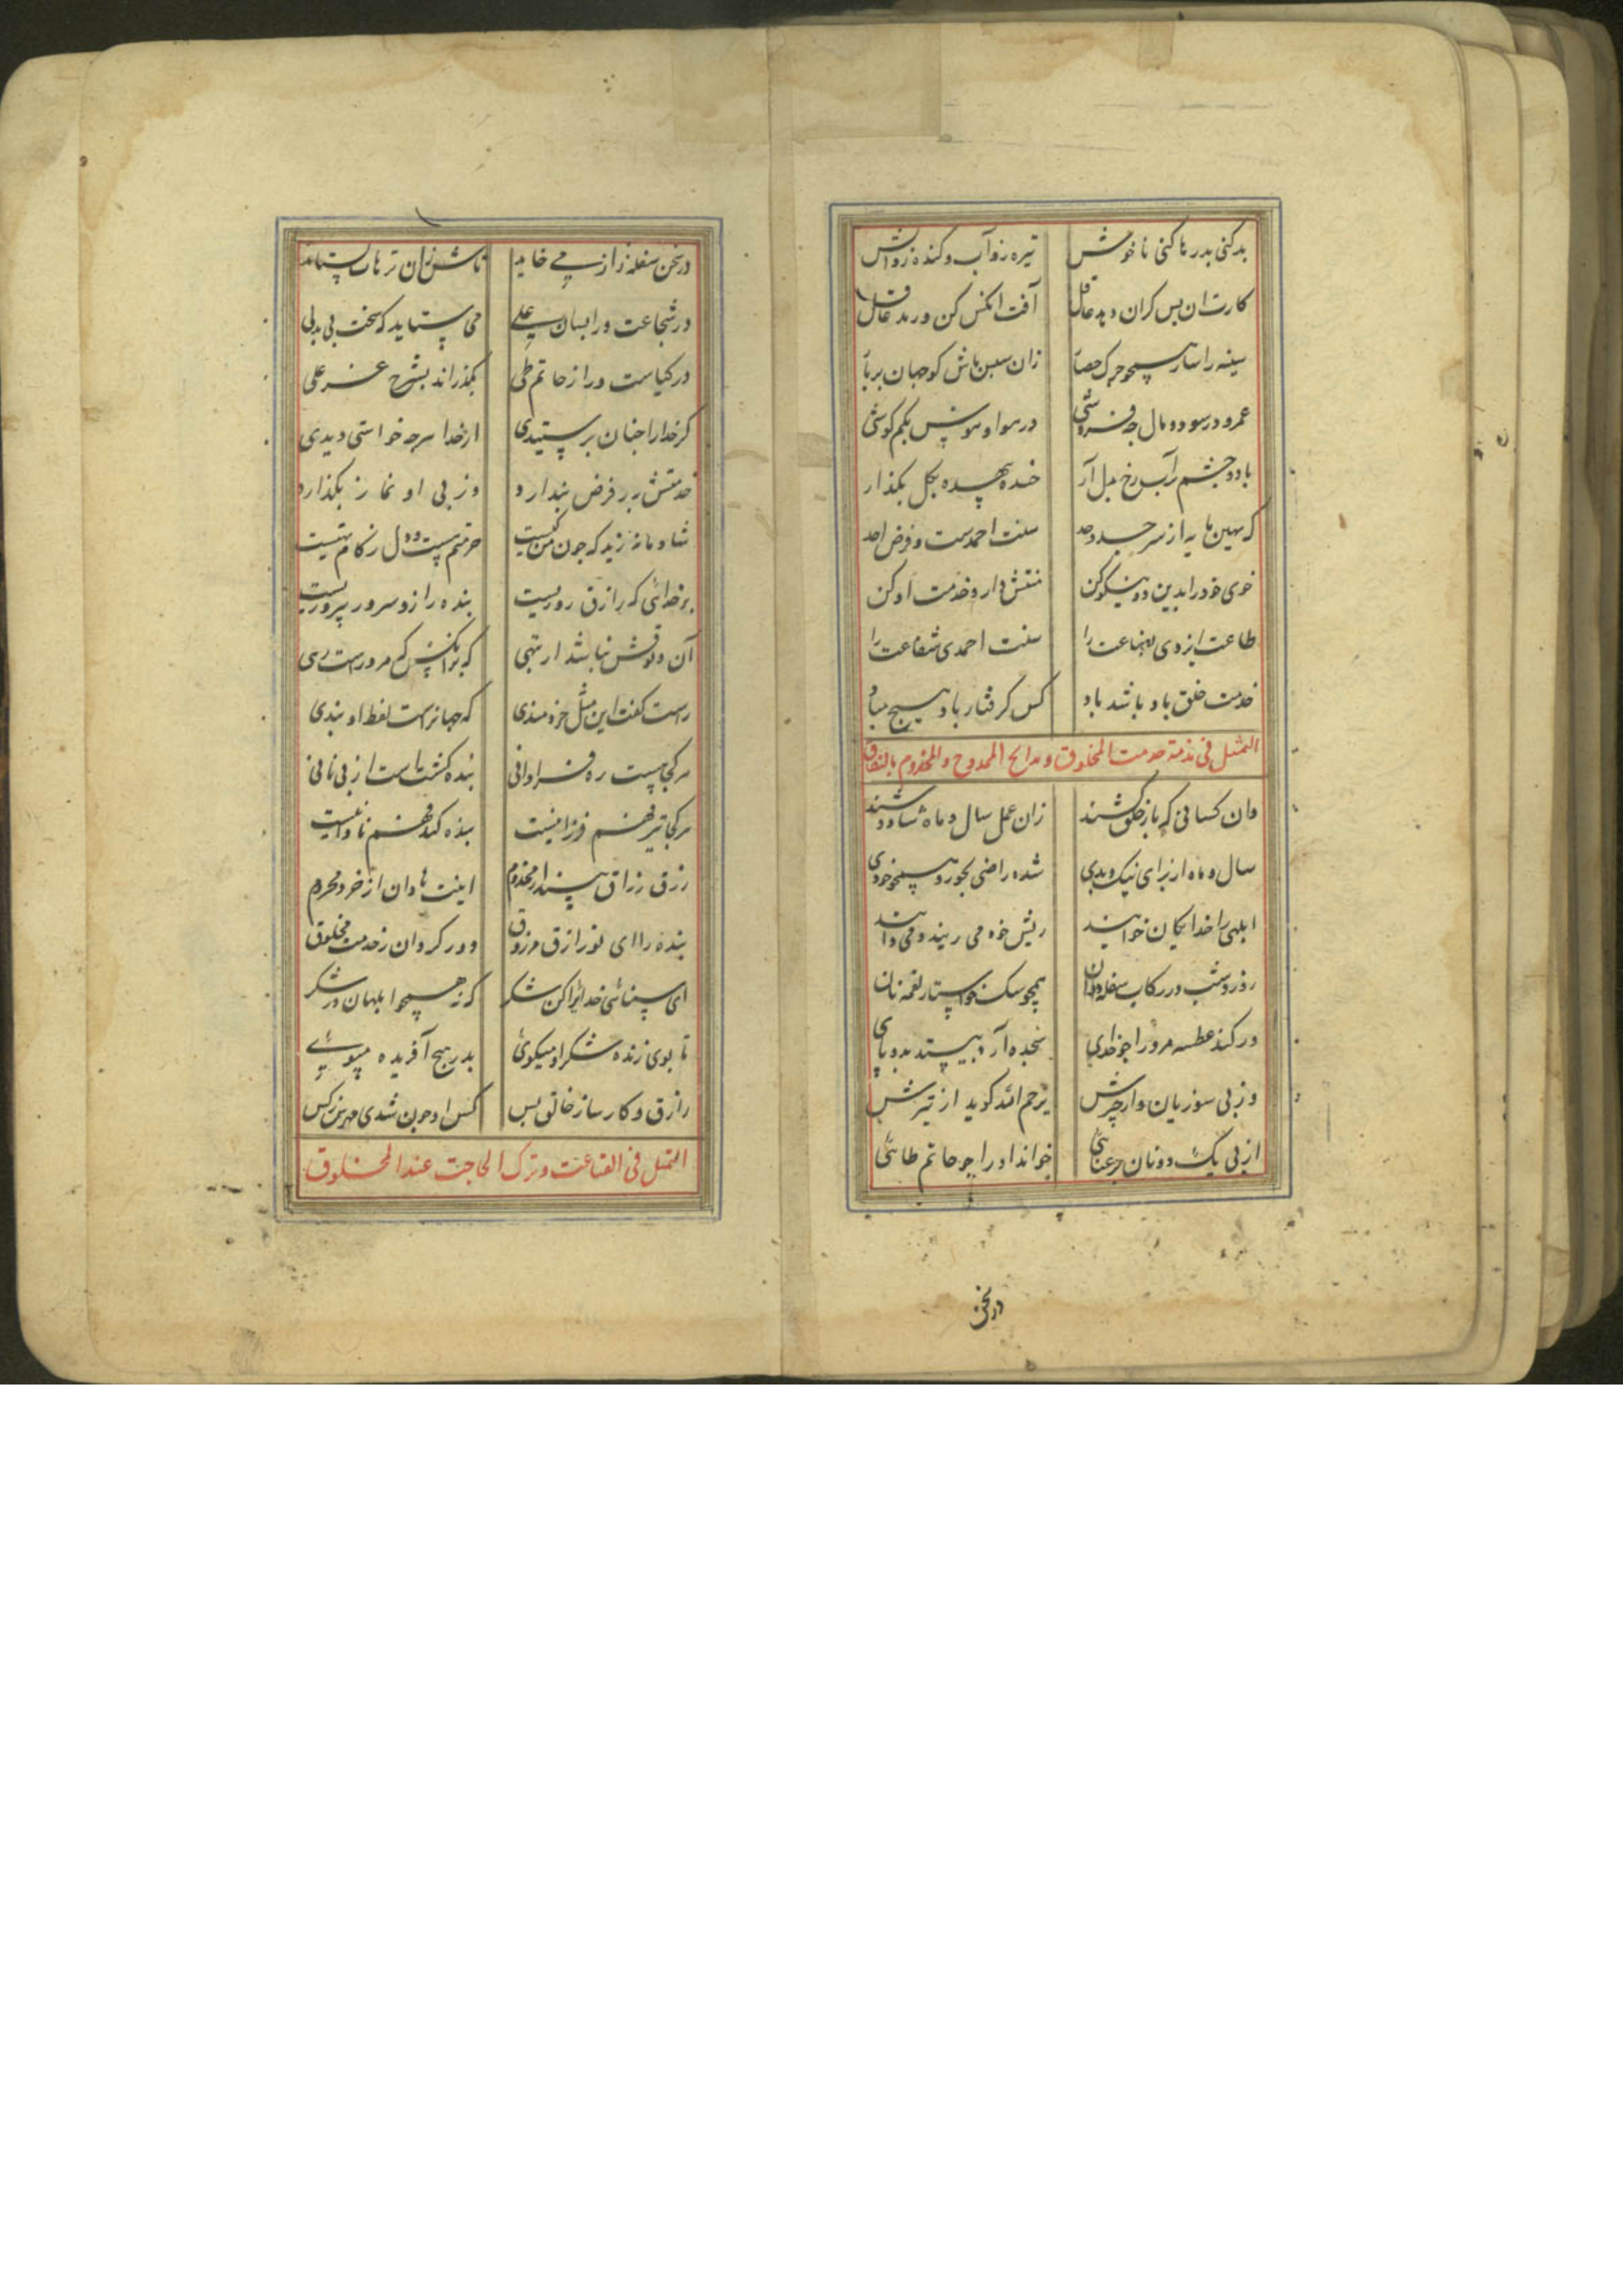 بد کنی بد رها کنی ناخوش تیره زو آب و کنده زو آتش
کارت ان بس کران دمد عاقل آفت انکس کن ورمد غافل
سینه را سار همچو حصار زان مباش کو جهان بر باد
عمر در سود و مال چه فروشی در سوا و هوس بکم کوشی
با دو چشم رآب رخ بدل آر خنده بکل بکذار
که بهین مایه از سر جد و حد سنت احمدست و فرض احد
خوی خود را بدین دو نیکو کن منتش دار و خدمت او کن
طاعت ایزدی بضاعت را سنت احمدی شفاعت را
خدمت خلق باد باشد باد کس کرفتار باد هیچ مباد
التمثل فی مذمة خدمت المخلوق و مدایح الممدوح و المخدوم بالنفاق
وان کسانی که یار خلق شدند زان عمل سال و ماه شاد و شدند
سال و ماه از برای نیک و بدی شده راضی بجور همچو خودی
ابلهی را خدایکان خوانند ریش خود می ریند و می دانند
روز و شب در رکاب سفله دوان همچو سک خواستار لقمه نان
ور کند عطسه مرورا چو خدای سجده آرد بیستد بدو پای
وز پی سوزیان و ارچرش یرحم الله کوید از تیزش
از پی یک دو نان رعنایی خواند او را چو حاتم طائی
در سخن
در سخن سفله ژاژ می خاید تاش زان ترهات بستاید
در شجاعت ورا بسان علی می ستاید که سخت بی بدلی
در کیاست ورا ز حاتم طی بکذراند بشرح عز علی
کر خدا را چنان پرستیدی از خدا هرچه خواستی دیدی
خدمتش بر فرض پندارد وز پی او نماز بکذارد
شادمانه زید که چون من کیست حرمتم هست و دل ز کام تهیست
بر خدائی که رازق روزیست بنده را زو سرور پیروزیست
آن وثوقش نباشد از تهی که بر انکس کم مروراست رهی
راست کفت این مثل خردمندی که جهانراست لفظ او بندی
هر کجا هست ره فراوانی بنده کشتاست از پی نانی
هر کجا تیزفهم فرزانیست بنده کندفهم نادانیست
رزق رزاق بیند از مخدوم اینت نادان از خرد محروم
بنده را ای تو رازق مرزوق دور کردان ز خدمت مخلوق
ای سنائی خدایرا کن شکر که نه همچو ابلهان در شکر
تا بوی زنده شکر او میکوی بدر هیچ آفریده مپوی
رازق و کارساز خالق بس کس او چون شدی مهرس ز کس
التمثل فی القناعت و ترک الحاجت عند المخلوق